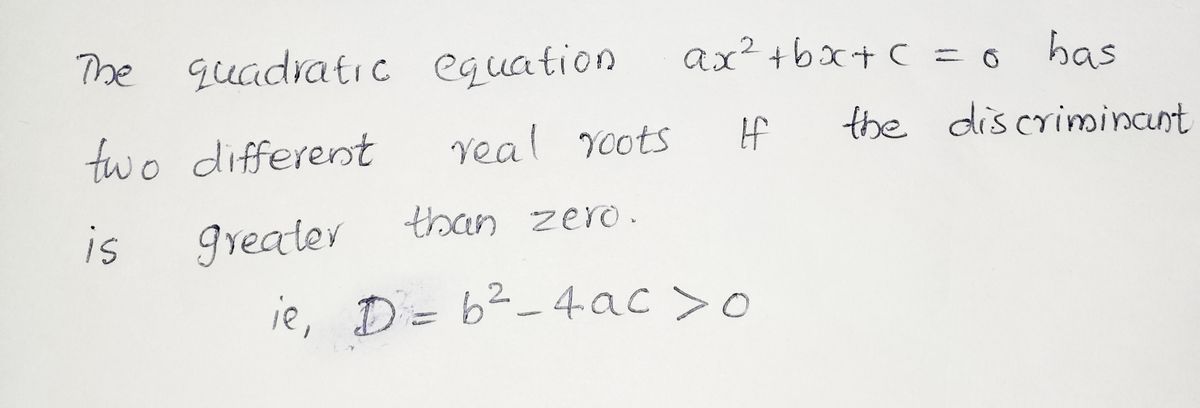 The quadratic equation ax² + bx + c = 0 has
two different real roots If the discriminant
is greater than zero.
ie, D = b² - 4ac > 0